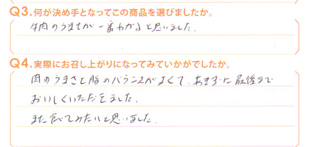 Q3.何が決め手となってこの商品を選びましたか。
肉のうまさが一番わかると思いました。
Q4.実際にお召し上がりになってみていかがでしたか。
肉のうまさと脂のバランスがよくて、あきずに最後まで
おいしくいただきました。
また食べてみたいと思いました。